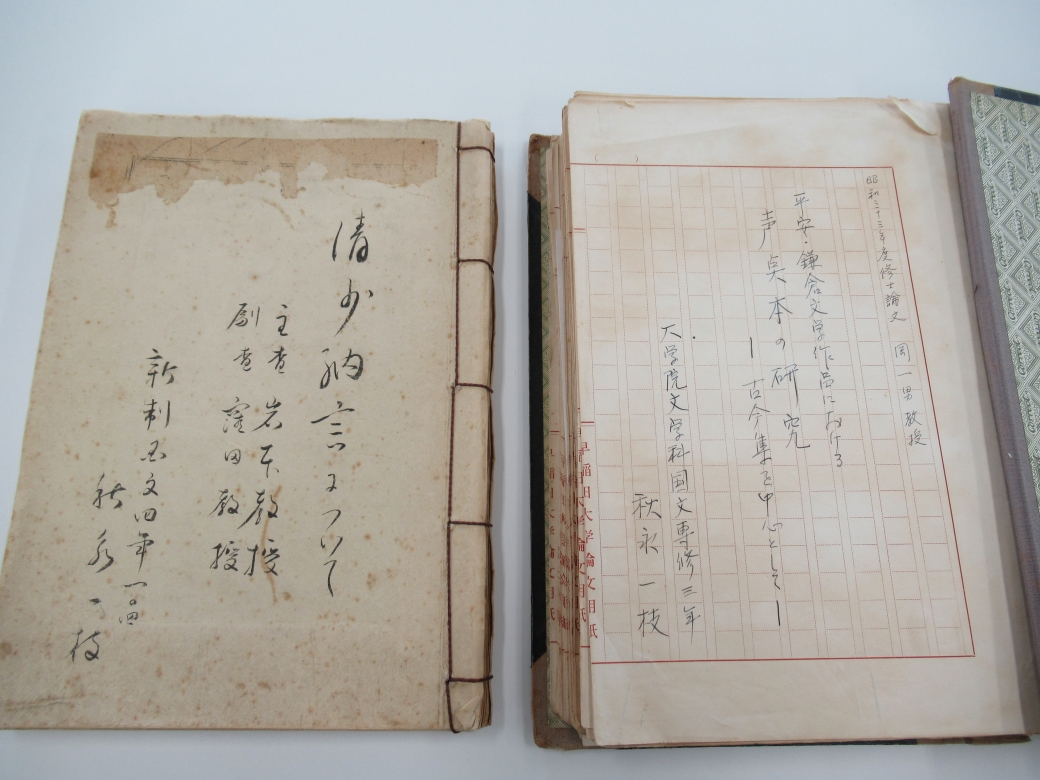 清少納言について
主査 岩下教授
副査 窪田教授
新制国文四年 一〇四
秋永一枝
昭和三十三年度修士論文 岡一男教授
平安・鎌倉文学作品における
声点本の研究
―古今集を中心として―
大学院文学科国文専修三年
秋永一枝
早稲田大学論文用紙